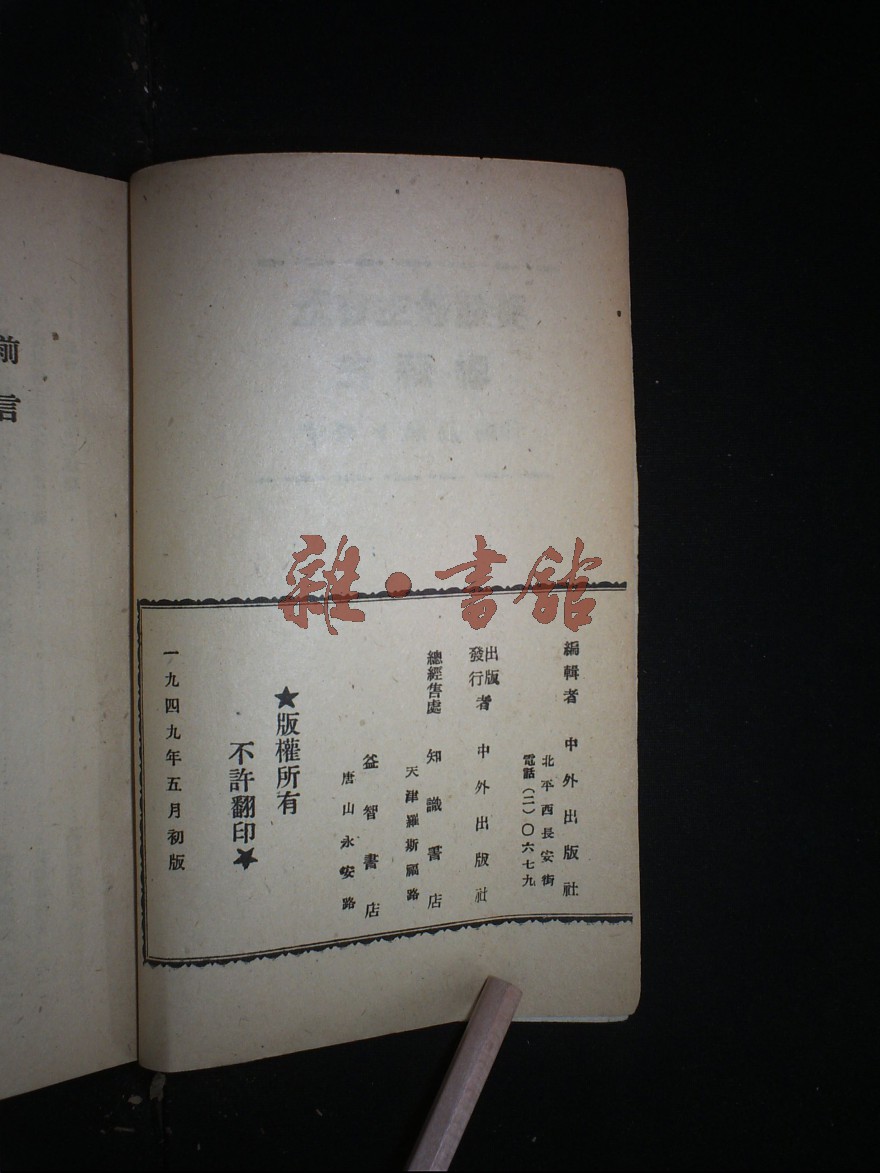 編輯者 中外出版社
北平西長安街
電話（二）〇六七九
出版
發行者 中外出版社
總經售處 知識書店
天津羅斯福路
益智書店
唐山永安路
★版權所有
不許翻印★
一九四九年五月初版
前言
雜·書館